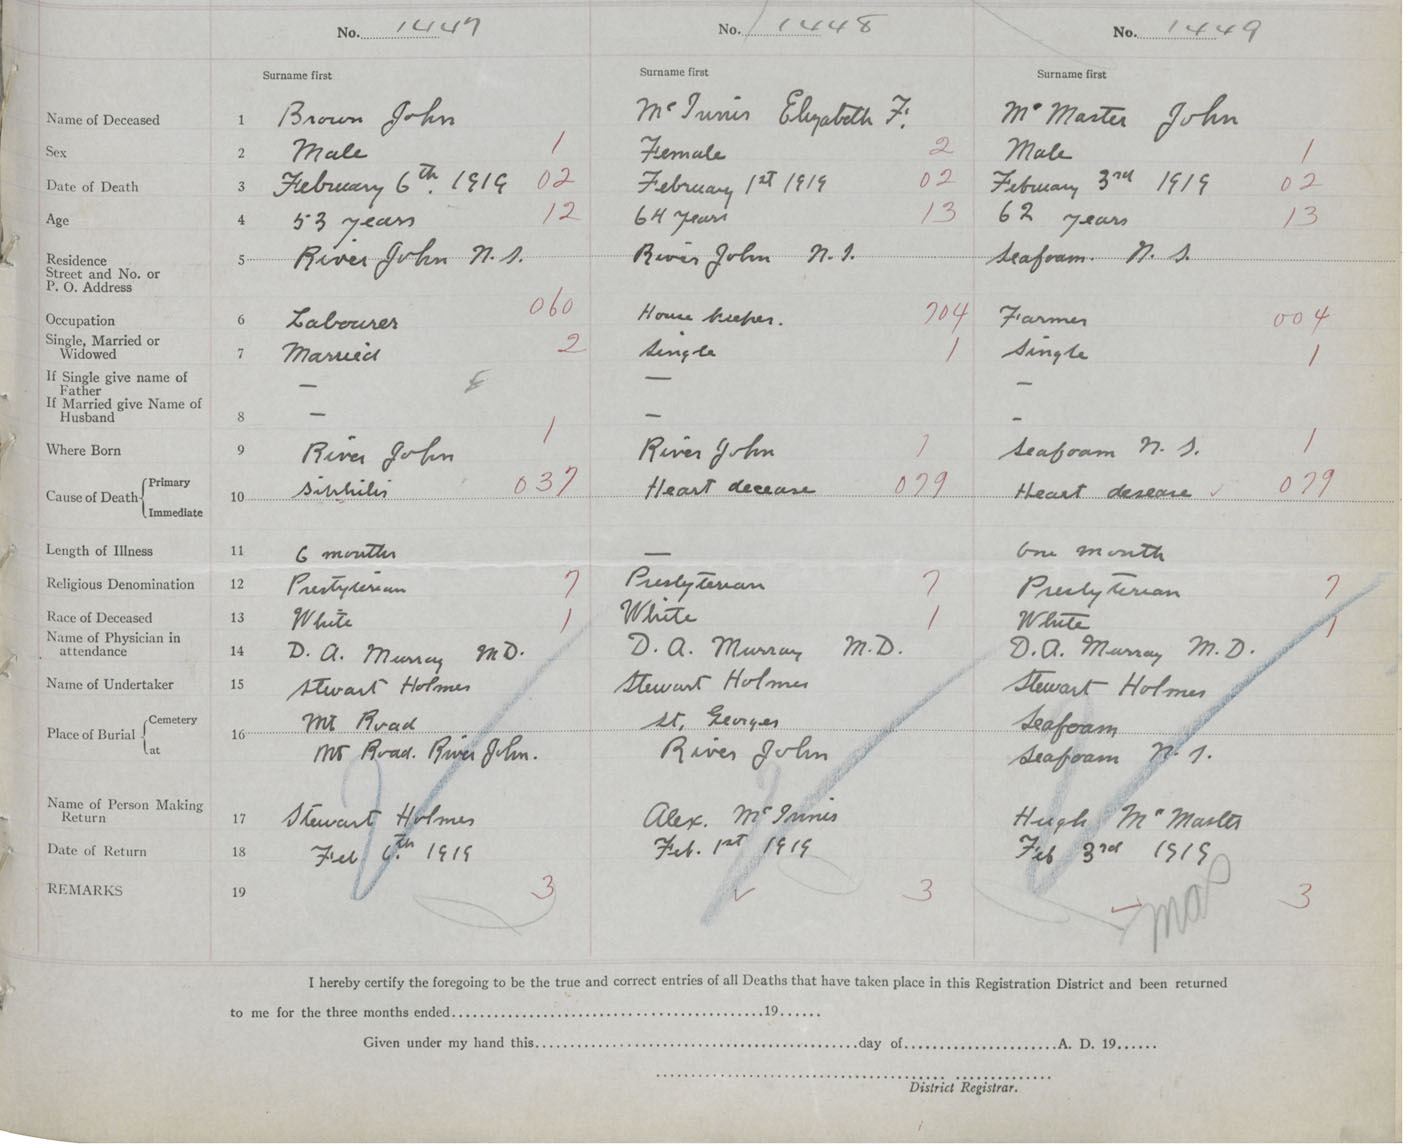 No. 1447 No. 1448 No. 1449
Surname first Surname first Surname first
Name of Deceased 1 Brown John McInnis Elizabeth F. McMaster John
Sex 2 Male 1 Female 2 Male 1
Date of Death 3 February 6th. 1919 02 February 1st 1919 02 February 3rd 1919 02
Age 4 53 years 12 64 years 13 62 years 13
Residence 5 River John N.S. River John N.S. Seafoam. N.S.
Street and No. or
P. O. Address
Occupation 6 Labourer 060 House keeper. 704 Farmer 004
Single, Married or
Widowed 7 Married 2 Single 1 Single 1
If Single give name of
Father — — —
If Married give Name of
Husband 8 — — -
Where Born 9 River John 1 River John 1 Seafoam N.S. 1
Cause of Death Primary
10 Siphilis 037 Heart decease 079 Heart desease 079
Immediate
Length of Illness 11 6 months — One month
Religious Denomination 12 Presbyterian 7 Presbyterian 7 Presbyterian 7
Race of Deceased 13 White 1 White 1 White 1
Name of Physician in
attendance 14 D. A. Murray M.D. D. A. Murray M.D. D.A. Murray M.D.
Name of Undertaker 15 Stewart Holmes Stewart Holmes Stewart Holmes
Place of Burial Cemetery 16 Mt Road St. Georges Seafoam
at Mt Road. River John. River John Seafoam N.S.
Name of Person Making
Return 17 Stewart Holmes Alex. McInnis Hugh McMaster
Date of Return 18 Feb. 6th. 1919 Feb. 1st 1919 Feb 3rd 1919
REMARKS 19 3 3 3
I hereby certify the foregoing to be the true and correct entries of all Deaths that have taken place in this Registration District and been returned
to me for the three months ended 19
Given under my hand this day of A. D. 19
District Registrar.